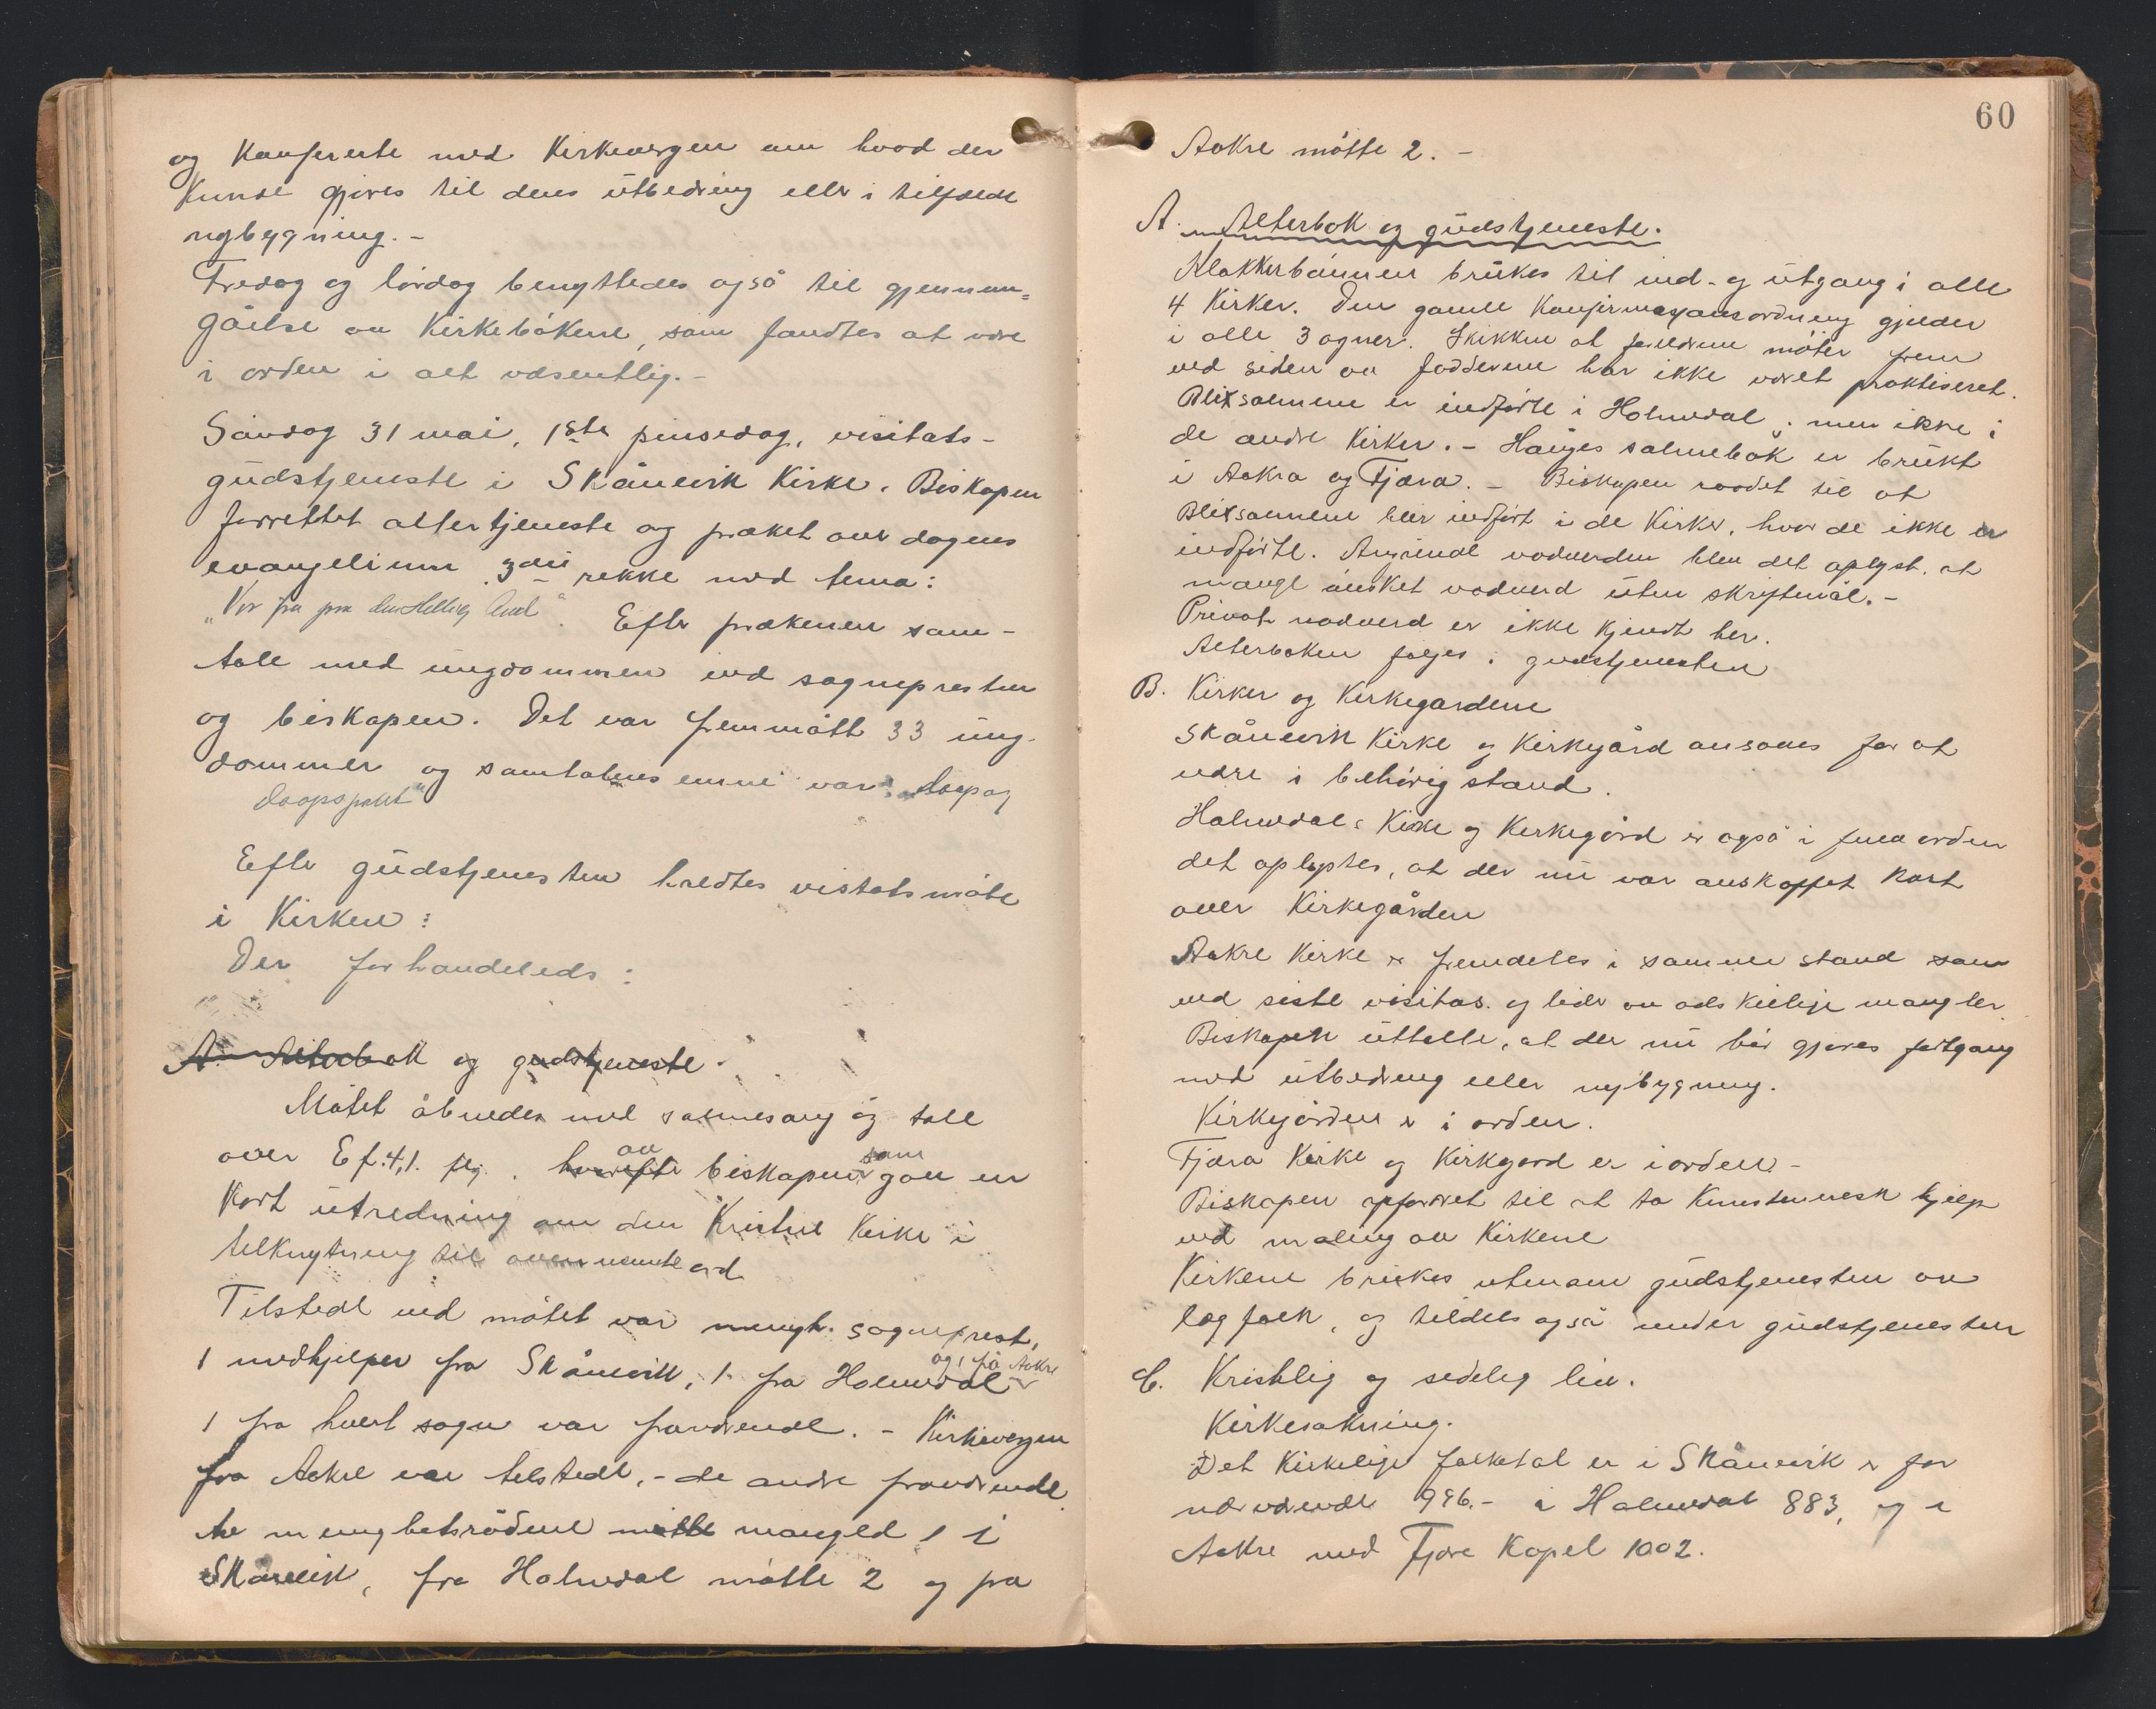 og Konfererte med Kirkevergen om hvad der
Kunde gjöres til dens utbedring eller i tilfælde
nybygning. -
Fredag og lördag benyttedes også til gjennem=
gåelse av Kirkebökene, som fandtes at være
i orden i alt væsentlig. -
Söndag 31 mai, 1ste pinsedag, visitats-
gudstjeneste i Skånevik Kirke. Biskopen
forrettet altertjeneste og præket over dagens
evangelium 3die rekke med tema:
Efter prækenen sam-
tale med ungdommen ved sognepresten
og biskopen. Det var fremmött 33 ung-
dommer og samtalens emne var: daap og
daapspakt"
Efter gudstjenesten holdtes visitatsmöte
i Kirken:
Der forhandleds:
A. Alterbok og gudstjeneste.
Mötet åbnedes med salmesang og tale
over Ef. 4,1. flg. hvorefter av biskopen som gav en
Kort utredning om den Kristne Kirke i
tilknytning til ovennevnte ord
Tilstede ved mötet var mengh. sogneprest,
1 medhjelper fra Skånevik, 1 fra Holmedal og 1 fra Aakre
1 fra hvert sogn var fraværende. - Kirkevergen
fra Aakre var tilstede, - de andre fraværende.
Av menighetsrådene mötte manglet 1 i
Skånevik, fra Holmedal mötte 2 og fra
60
Aakre mötte 2. -
A. Alterbok og gudstjeneste.
Klokkerbönnen brukes til ind- og utgang i alle
4 Kirker. Den gamle Konfirmasjonsordning gjelder
i alle 3 sogner. Skikken at foreldrene möter frem
ved siden av fadderne har ikke været praktiseret.
Blixsalmene er indförte i Holmedal, men ikke i
de andre Kirker. - Hauges salmebok er brukt
i Aakra og Fjæra. - Biskopen raadet til at
Blixsalmene blir indfört i de Kirker, hvor de ikke er
indförte. Angående nadverden blev det oplyst, at
mange önsket nadverd uten skriftemål. -
Privat nadverd er ikke kjendt her.
Alterboken fölges i gudstjenesten
B. Kirker og Kirkegardene
Skånevik Kirke og Kirkegård ansaaes for at
være i behörig stand.
Holmedals Kirke og Kirkegård er også i full orden
det oplystes, at der nu var anskaffet Kart
over Kirkegården
Aakre Kirke er fremdeles i samme stand som
ved siste visitas. og lider av adskillige mangler.
Biskopen uttalte, at der nu bör gjöres fortgang
med utbedring eller nybygning.
Kirkegården er i orden.
Fjæra Kirke og Kirkegard er i orden. -
Biskopen opfordret til at ta Kunstnerisk hjelp
ved maling av Kirkene
Kirkene brukes utenom gudstjenesten av
lægfolk, og tildels også under gudstjenesten
C. Kristelig og sedelig liv.
Kirkesökning.
Det Kirkelige folketal er i Skånevik er for
nærværende 996. - i Holmedal 883, og i
Aakre med Fjære Kapel 1002.